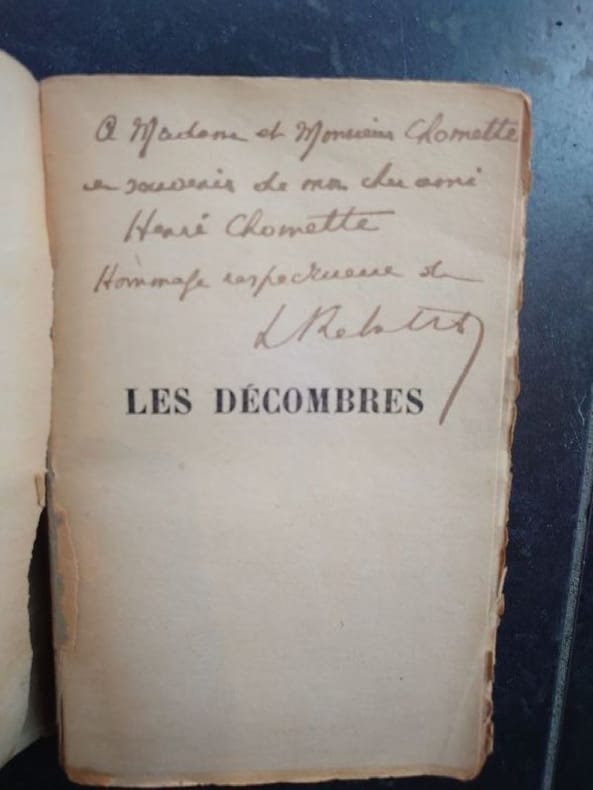 A Madame et Monsieur Chomette
en souvenir de mon cher ami
Henri Chomette
Hommage respectueux de
L Rebatet
LES DÉCOMBRES